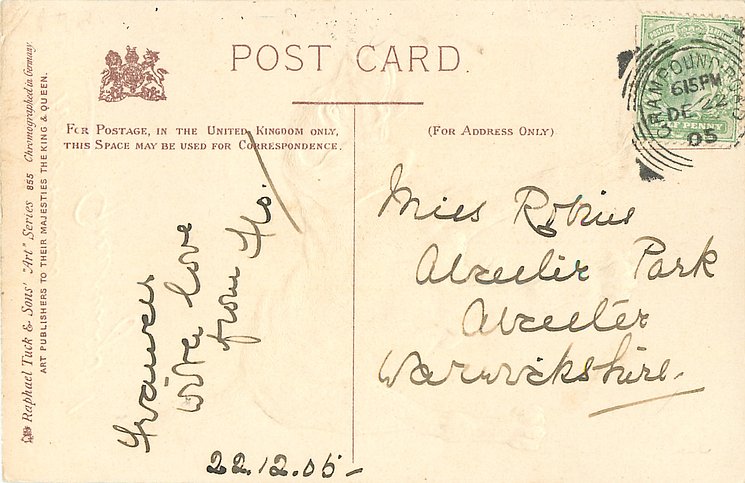 POST CARD.
FOR POSTAGE, IN THE UNITED KINGDOM ONLY,
THIS SPACE MAY BE USED FOR CORRESPONDENCE.
(FOR ADDRESS ONLY)
GRAMPOUND ROAD
615PM
DE 22
05
HALF PENNY
Raphael Tuck & Sons' "Art" Series 855 Chromographed in Germany.
ART PUBLISHERS TO THEIR MAJESTIES THE KING & QUEEN.
with love
from
22.12.05-
Miss Robins
Alcester Park
Alcester
Warwickshire.